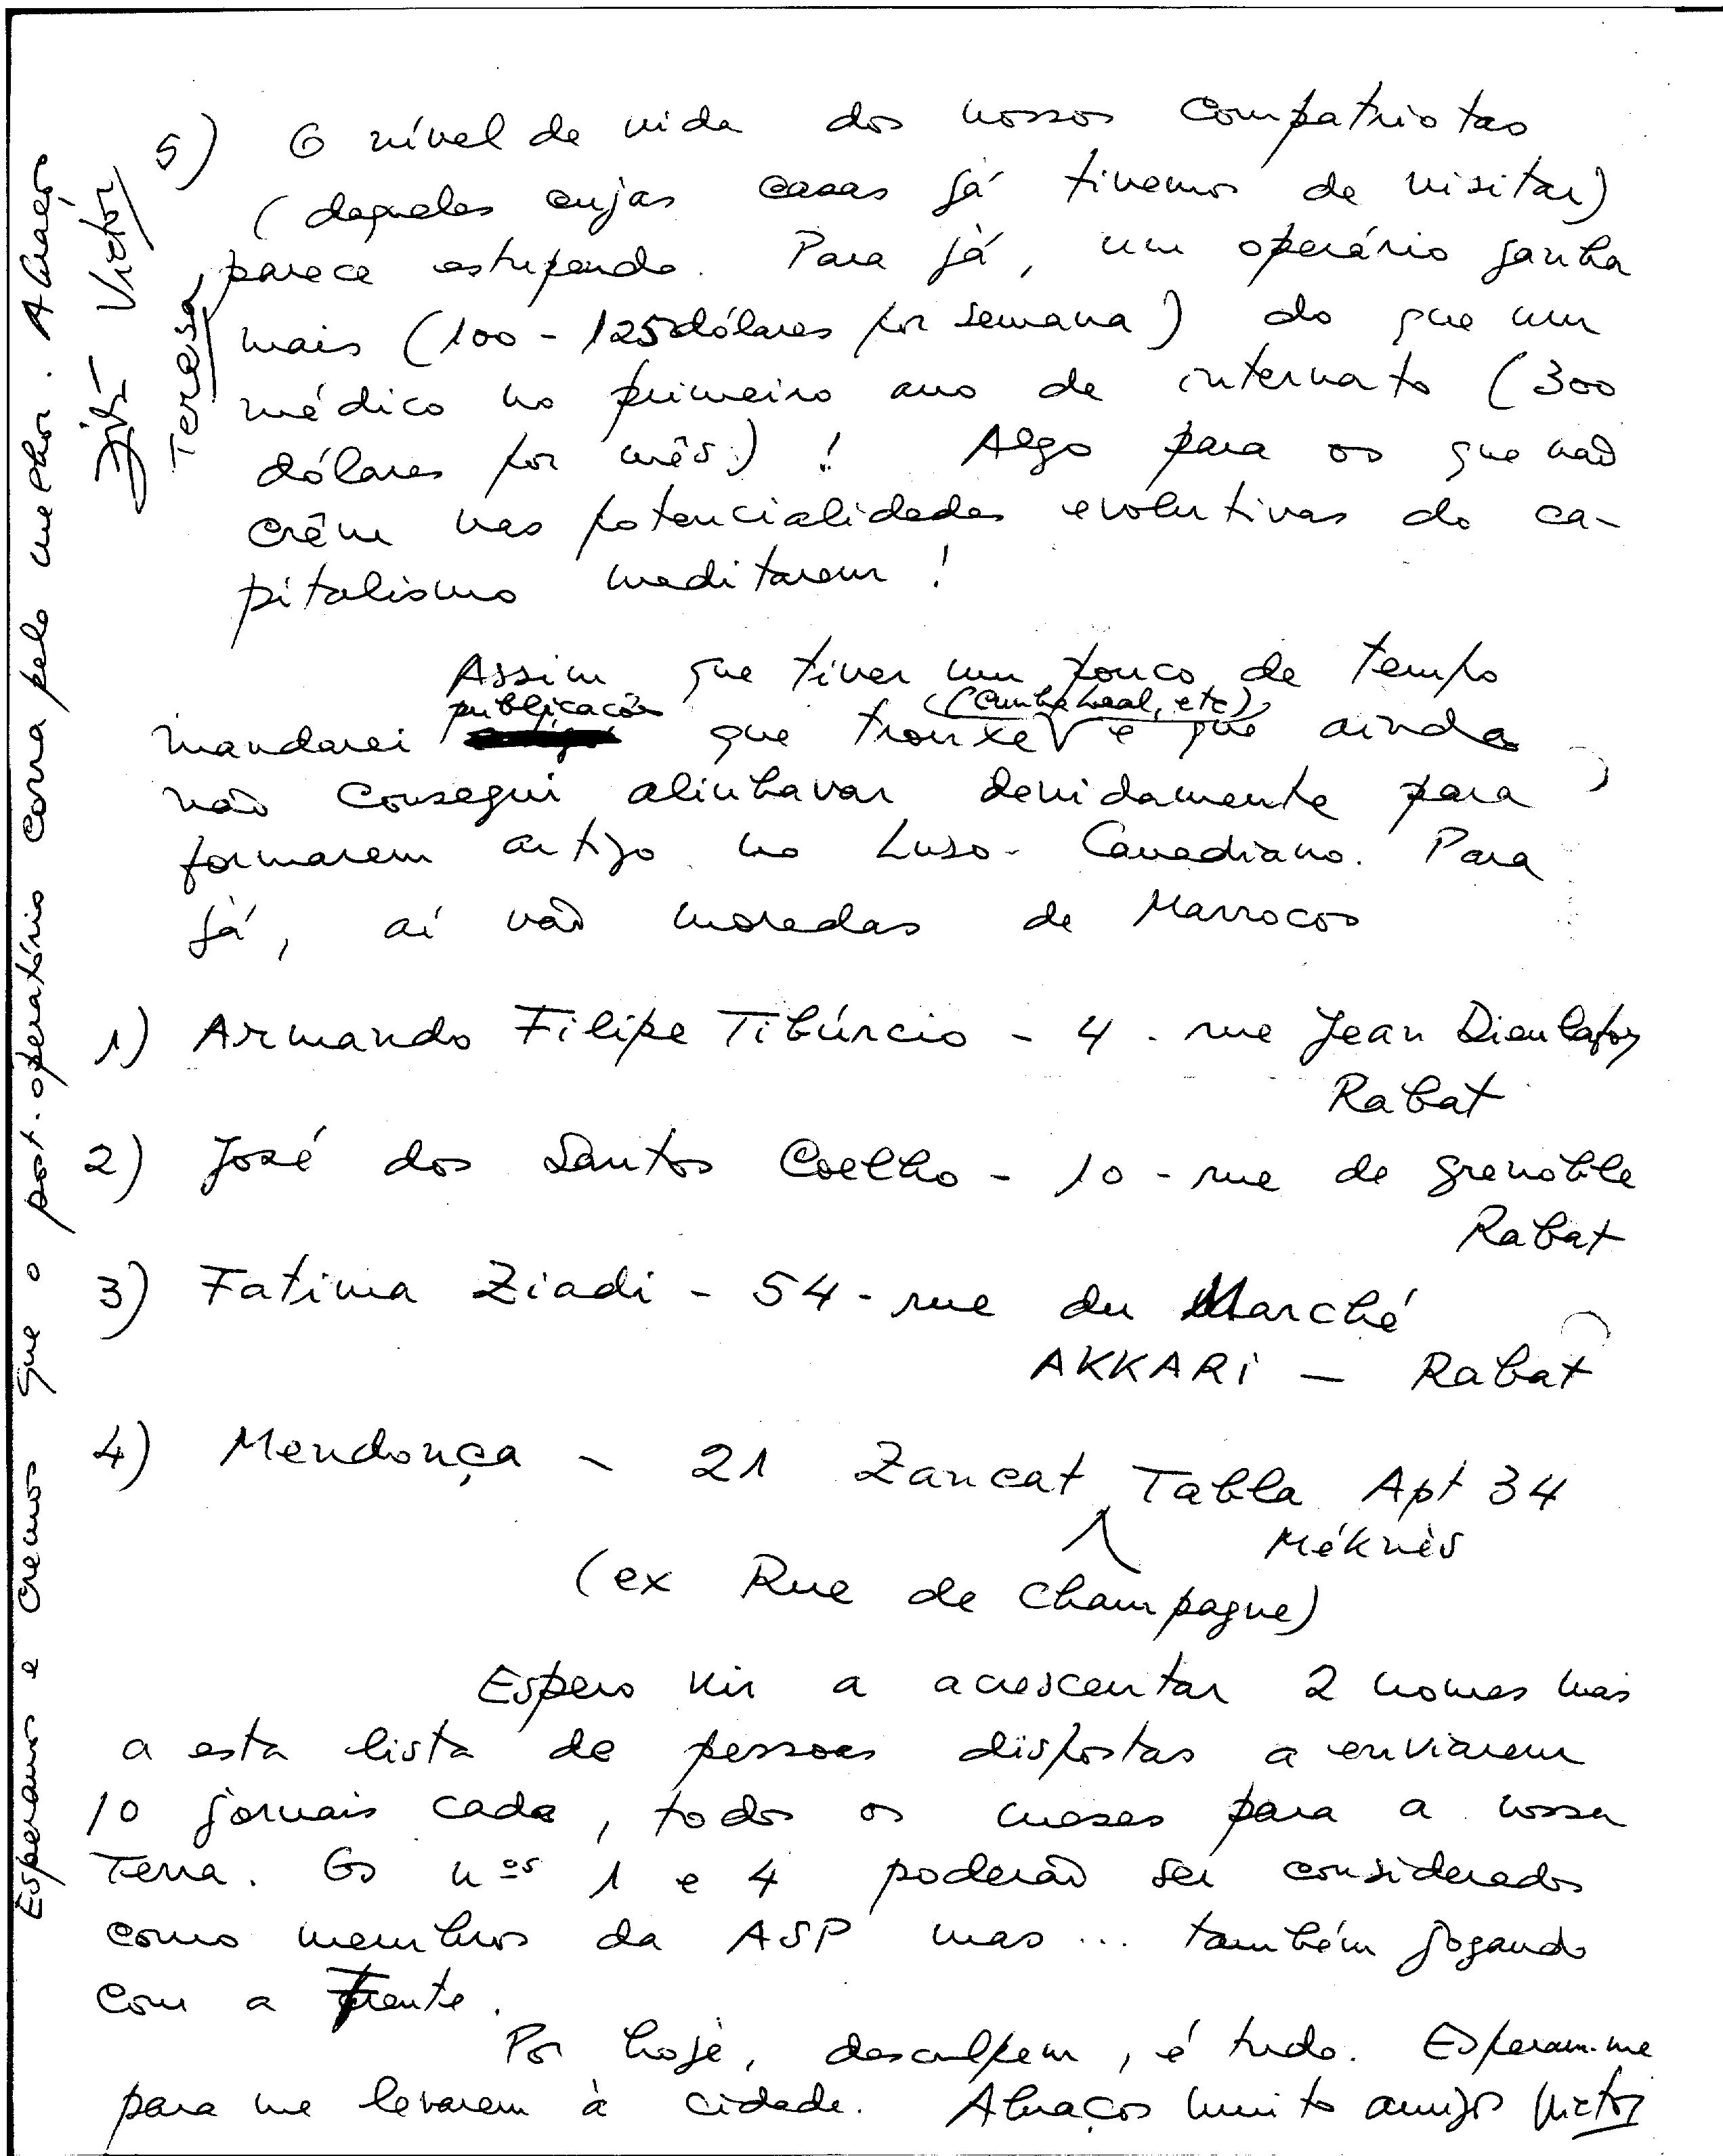 5) O nível de vida dos nossos compatriotas
(daqueles cujas casas já tivemos de visitar)
parece estupendo. Para já, um operário ganha
mais (100 - 125 dólares por semana) do que um
médico no primeiro ano de internato (300
dólares por mês)! Algo para os que não
crêm nas potencialidades evolutivas do ca-
pitalismo meditarem!
Assim que tiver um pouco de tempo
publicacões (Cunha Leal, etc)
mandarei que trouxe e que ainda
não consegui alinhavar devidamente para
formarem artigo no Luso-Canadiano. Para
já, aí vão moradas de Marrocos
1) Armando Filipe Tibúrcio - 4 - rue Jean Dieulafoy
Rabat
2) José dos Santos Coelho - 10 - rue de Grenoble
Rabat
3) Fatima Ziadi - 54 - rue du Marché
AKKARI — Rabat
4) Mendonça - 21 Zancat Tabla Apt 34
Méknès
(ex Rue de Champagne)
Espero vir a acrescentar 2 nomes mais
a esta lista de pessoas dispostas a enviarem
10 jornais cada, todos os meses para a nossa
Terra. Os nºs 1 e 4 poderão ser considerados
como membros da ASP mas... também jogando
com a Frente.
Por hoje, desculpem, é tudo. Esperam-me
para me levarem à cidade. Abraços muito amigos Victor
Esperamos e cremos que o post-operatório corra pelo melhor. Abraços
Victor
Teresa